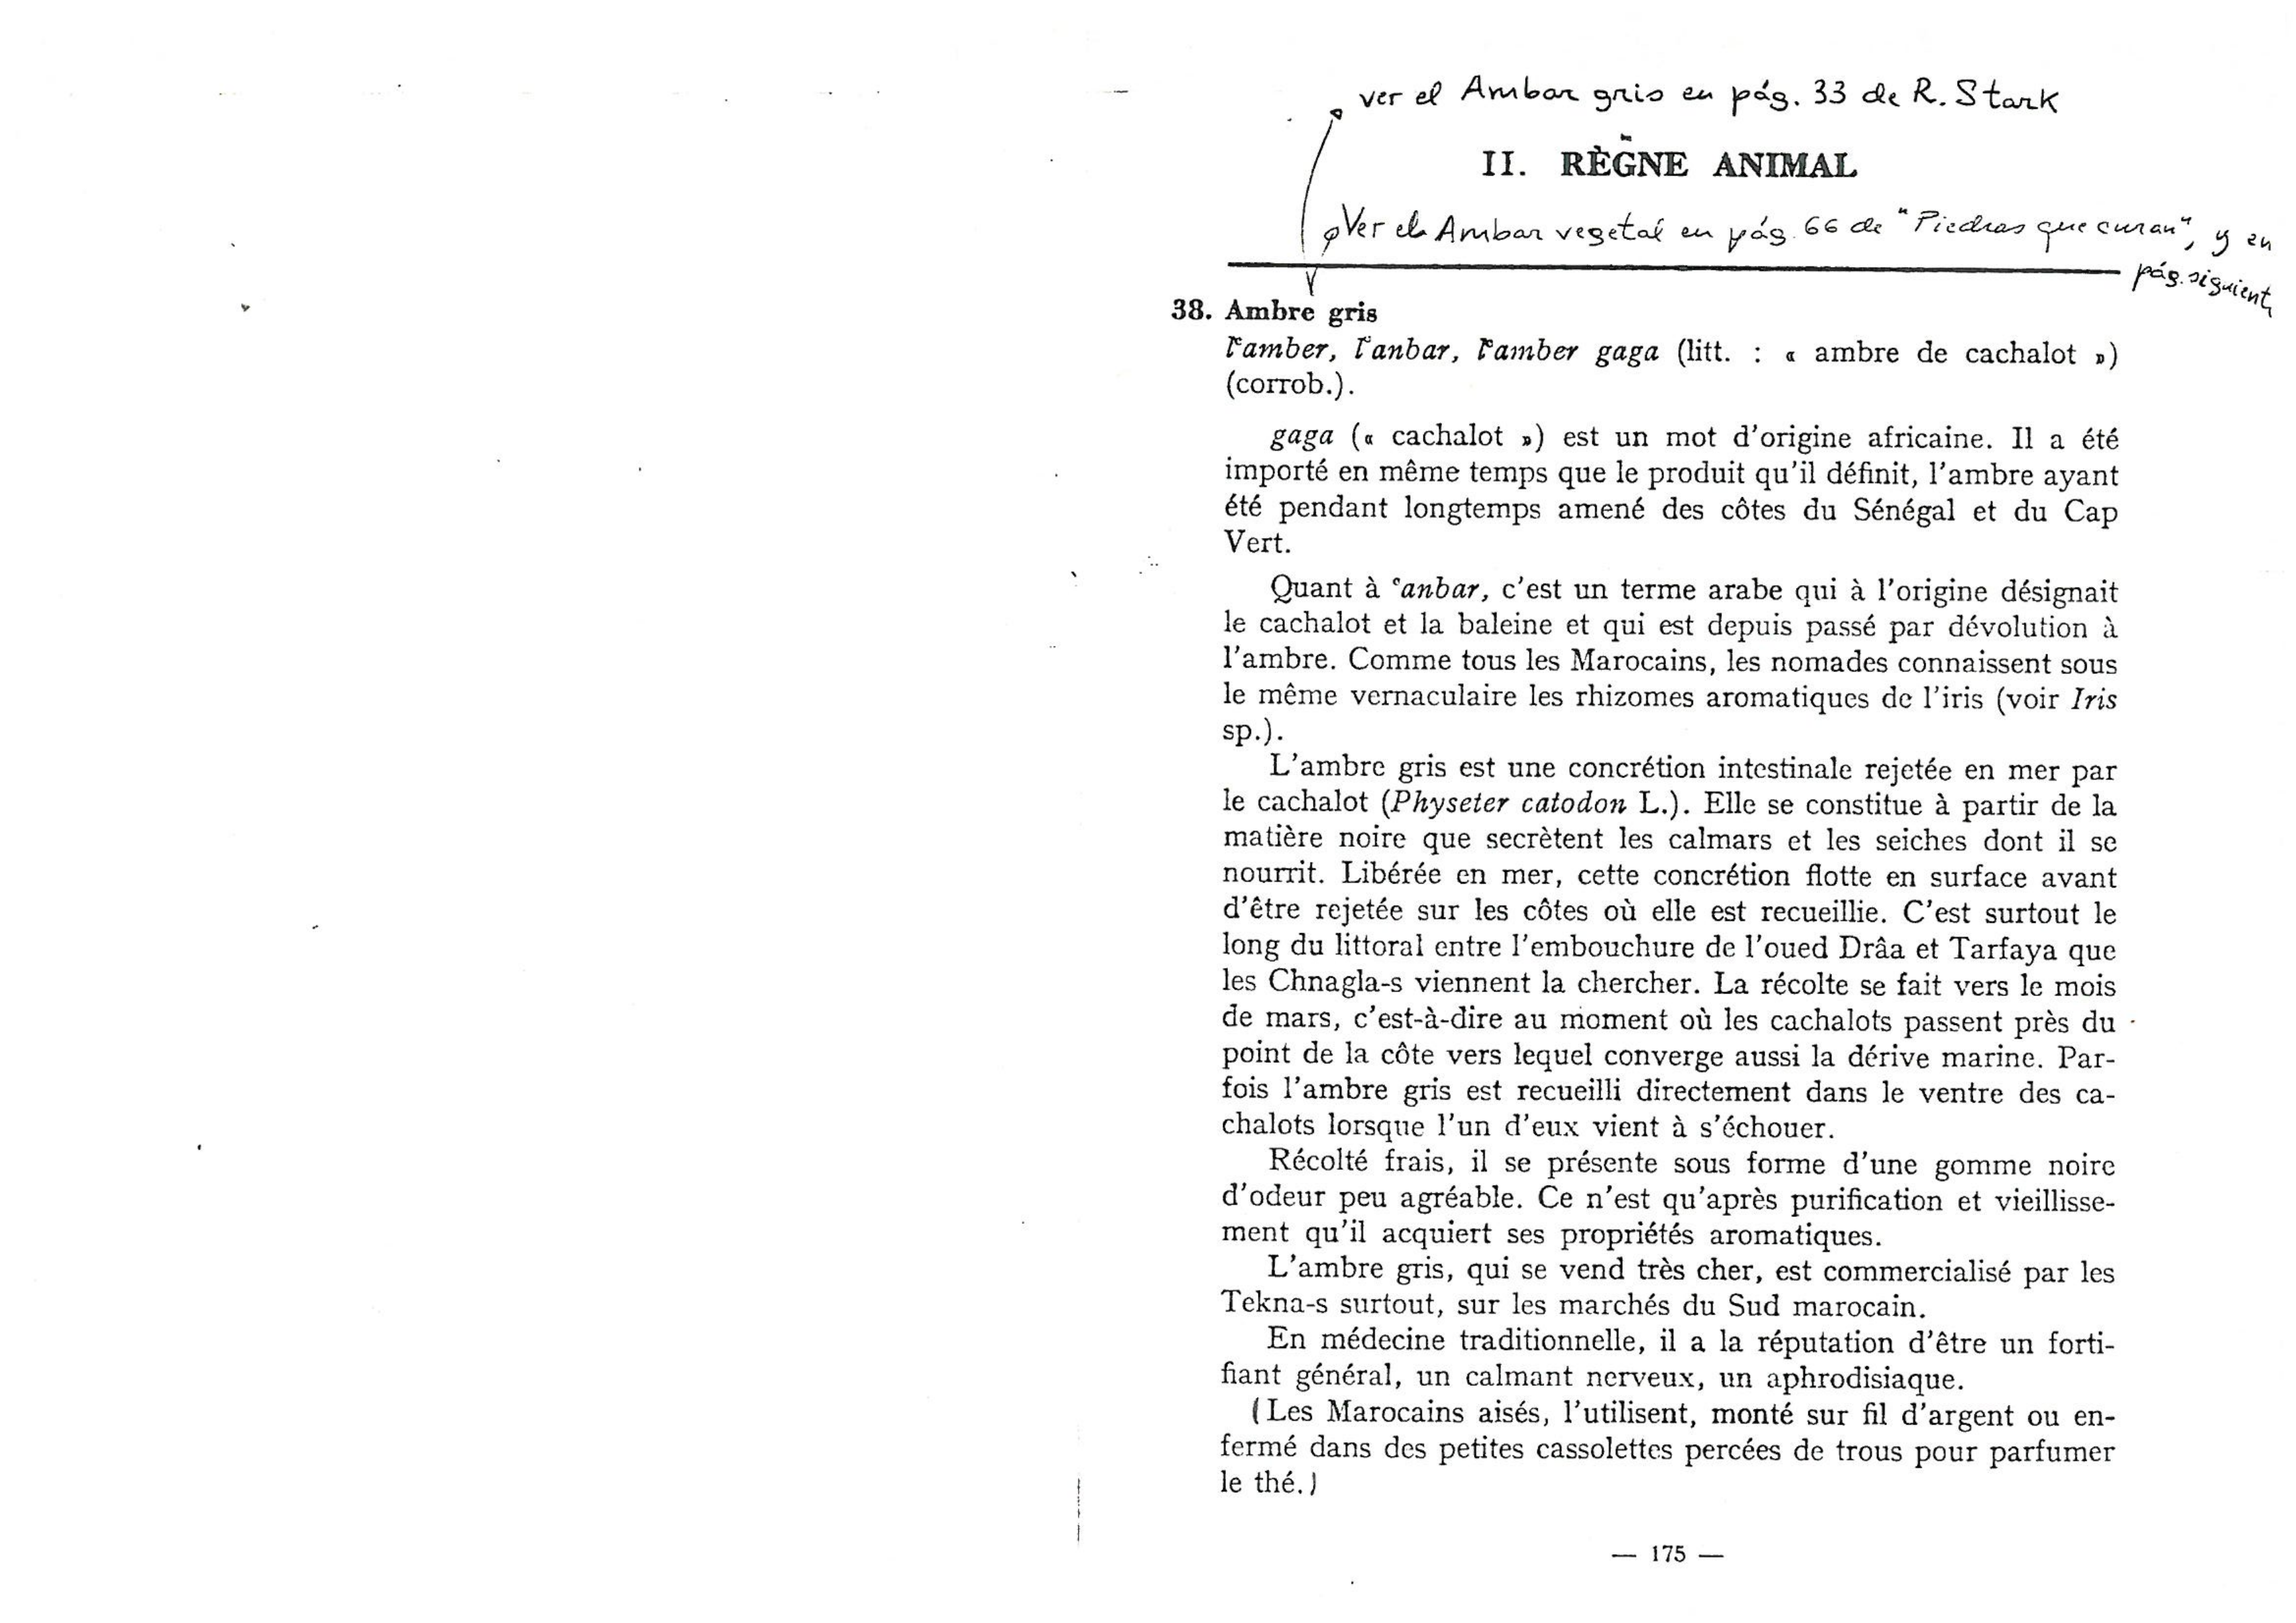 ver el Ambar gris en pág. 33 de R. Stark
II. RÈGNE ANIMAL
Ver el Ambar vegetal en pág. 66 de "Piedras que curan", y en
pág. siguiente
38. Ambre gris
lʿamber, lʿanbar, lʿamber gaga (litt. : « ambre de cachalot »)
(corrob.).
gaga (« cachalot ») est un mot d'origine africaine. Il a été
importé en même temps que le produit qu'il définit, l'ambre ayant
été pendant longtemps amené des côtes du Sénégal et du Cap
Vert.
Quant à ʿanbar, c'est un terme arabe qui à l'origine désignait
le cachalot et la baleine et qui est depuis passé par dévolution à
l'ambre. Comme tous les Marocains, les nomades connaissent sous
le même vernaculaire les rhizomes aromatiques de l'iris (voir Iris
sp.).
L'ambre gris est une concrétion intestinale rejetée en mer par
le cachalot (Physeter catodon L.). Elle se constitue à partir de la
matière noire que secrètent les calmars et les seiches dont il se
nourrit. Libérée en mer, cette concrétion flotte en surface avant
d'être rejetée sur les côtes où elle est recueillie. C'est surtout le
long du littoral entre l'embouchure de l'oued Drâa et Tarfaya que
les Chnagla-s viennent la chercher. La récolte se fait vers le mois
de mars, c'est-à-dire au moment où les cachalots passent près du
point de la côte vers lequel converge aussi la dérive marine. Par-
fois l'ambre gris est recueilli directement dans le ventre des ca-
chalots lorsque l'un d'eux vient à s'échouer.
Récolté frais, il se présente sous forme d'une gomme noire
d'odeur peu agréable. Ce n'est qu'après purification et vieillisse-
ment qu'il acquiert ses propriétés aromatiques.
L'ambre gris, qui se vend très cher, est commercialisé par les
Tekna-s surtout, sur les marchés du Sud marocain.
En médecine traditionnelle, il a la réputation d'être un forti-
fiant général, un calmant nerveux, un aphrodisiaque.
(Les Marocains aisés, l'utilisent, monté sur fil d'argent ou en-
fermé dans des petites cassolettes percées de trous pour parfumer
le thé.)
— 175 —